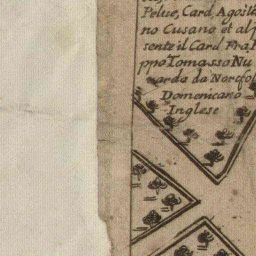 Pelue, Card, Agosti
no Cusano et al p
sente il Card. Fra, Fi
ppo Tomasso Nu
uarda da Norcfol
Domenicano
Inglese